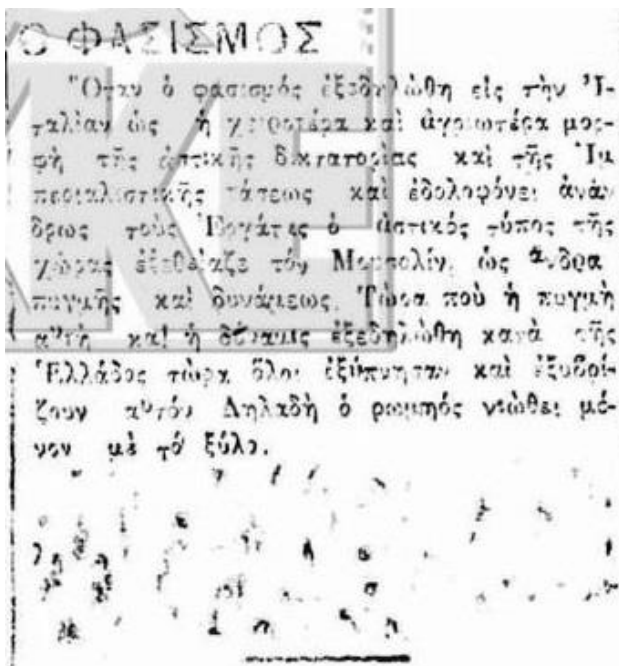 Ο ΦΑΣΙΣΜΟΣ
Ὅταν ὁ φασισμός ἐξεδηλώθη εἰς τὴν Ἰ-
ταλίαν ὡς ἡ χειροτέρα καὶ ἀγριωτέρα μορ-
φὴ τῆς ἀστικῆς δικτατορίας καὶ τῆς Ἰμ
περιαλιστικῆς τάσεως καὶ ἐδολοφόνει ἀνάν
δρως τοὺς Ἐργάτες ὁ ἀστικός τύπος τῆς
χώρας ἐξεθείαζε τόν Μουσολίνι ὡς ἄνδρα
πυγμῆς καὶ δυνάμεως. Τῶρα ποὺ ἡ πυγμὴ
αὐτὴ καὶ ἡ δύναμις ἐξεδηλώθη κατὰ τῆς
Ἑλλάδος τώρα ὅλοι ἐξύπνησαν καὶ ἐξυβρί-
ζουν αὐτόν Δηλαδὴ ὁ ρωμηός νιώθει μό-
νον μὲ τό ξύλο.
ΚΚΕ